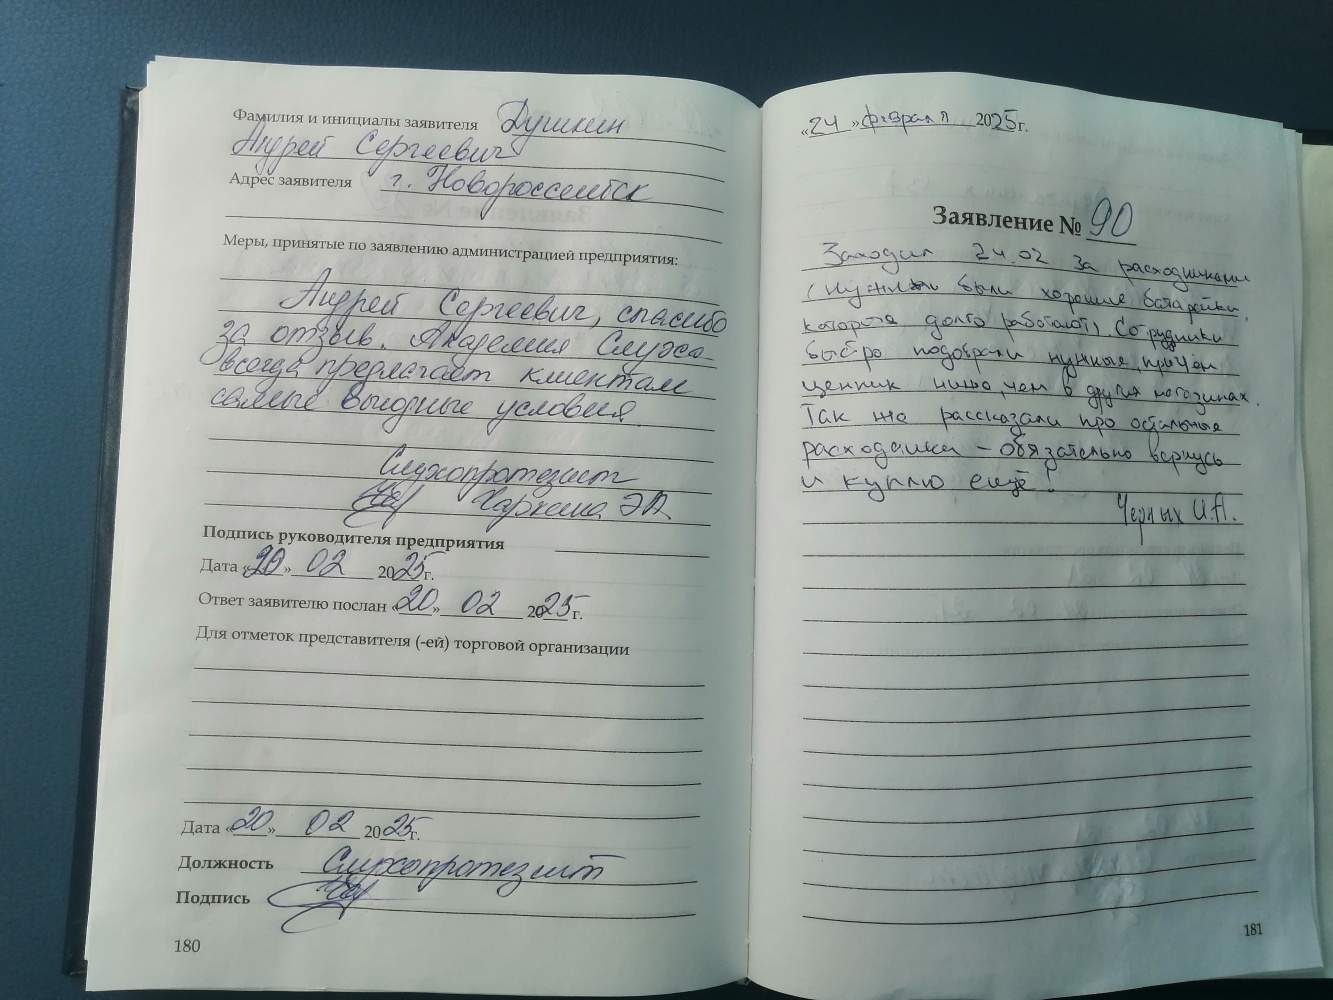 Фамилия и инициалы заявителя Душкин
Андрей Сергеевич
Адрес заявителя г. Новороссийск
Меры, принятые по заявлению администрацией предприятия:
Андрей Сергеевич, спасибо
за отзыв. Академия Слуха
всегда предлагает клиентам
самые выгодные условия.
Слухопротезист
Харкина Э.А.
Подпись руководителя предприятия
Дата «20» 02 2025г.
Ответ заявителю послан «20» 02 2025г.
Для отметок представителя (-ей) торговой организации
Дата «20» 02 2025г.
Должность Слухопротезист
Подпись
180
«24» февраля 2025г.
Заявление № 90
Заходил 24.02 за расходниками
(нужны были хорошие батарейки,
которые долго работают). Сотрудники
быстро подобрали нужные, причём
ценник ниже, чем в других магазинах.
Так же рассказали про остальные
расходники – обязательно вернусь
и куплю ещё!
Черных И.А.
181